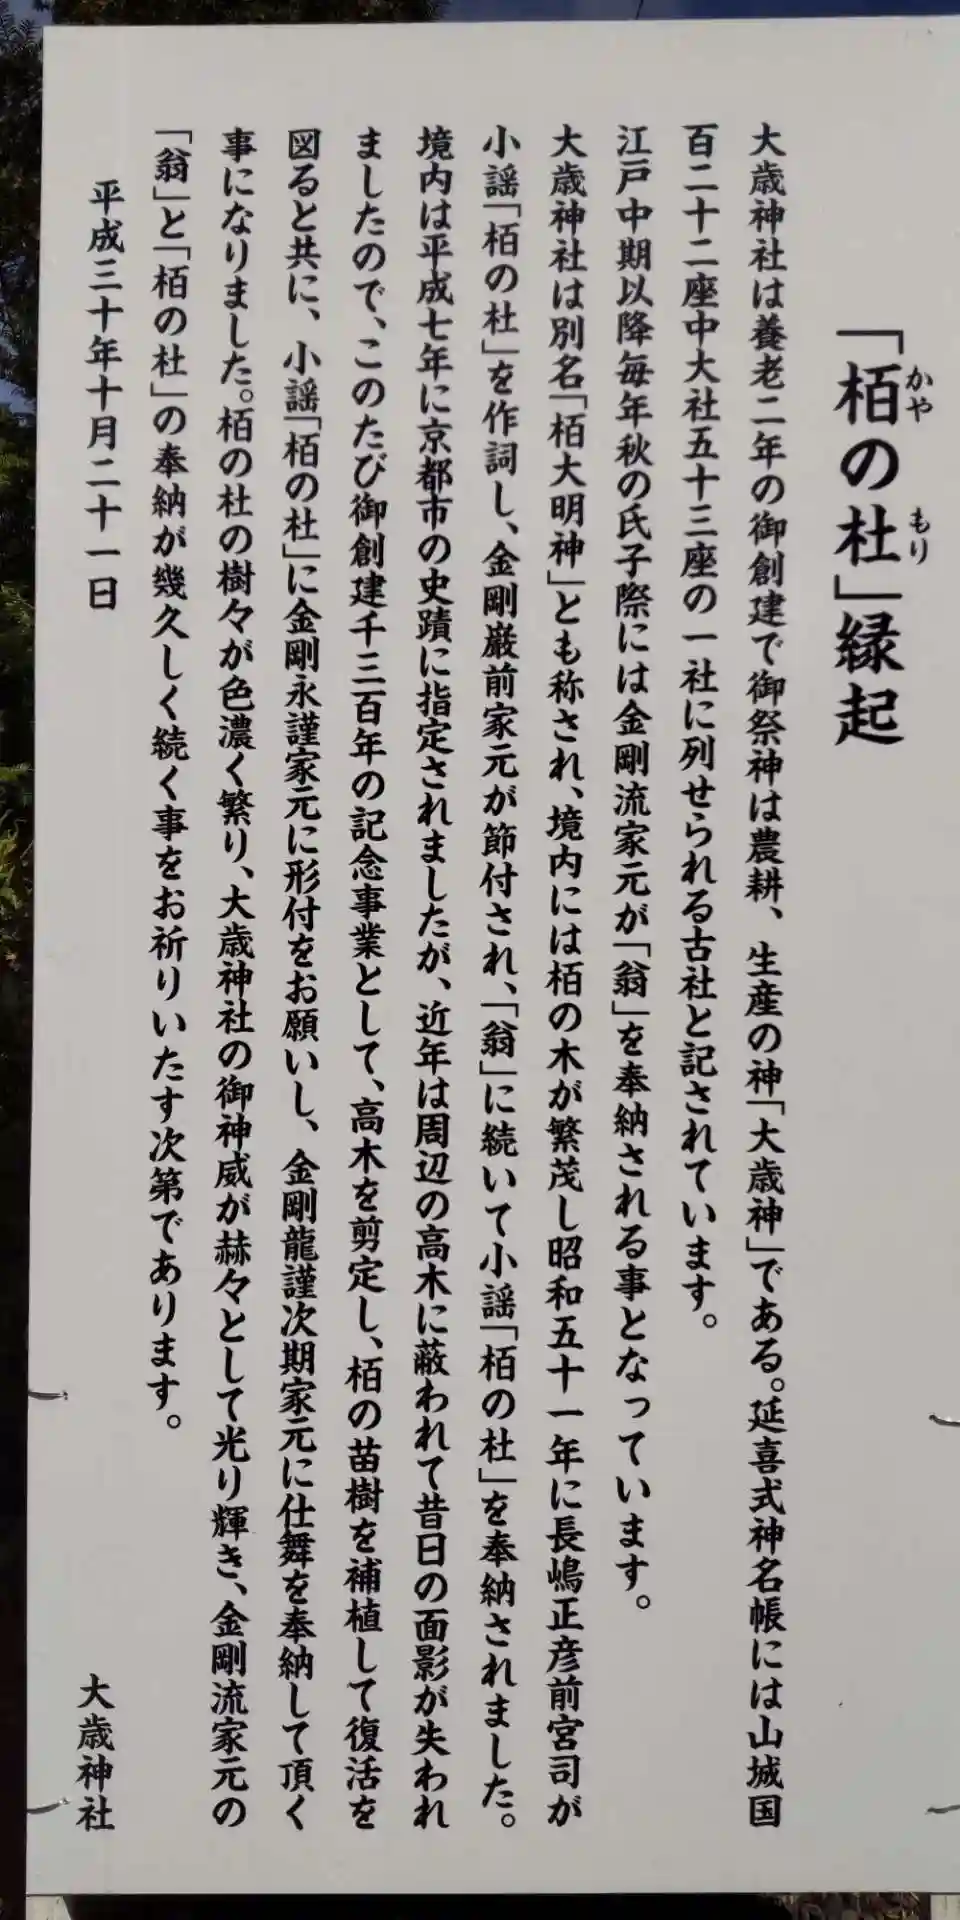 「栢の杜」縁起
かや もり
大歳神社は養老二年の御創建で御祭神は農耕、生産の神「大歳神」である。延喜式神名帳には山城国
百二十二座中大社五十三座の一社に列せられる古社と記されています。
江戸中期以降毎年秋の氏子際には金剛流家元が「翁」を奉納される事となっています。
大歳神社は別名「栢大明神」とも称され、境内には栢の木が繁茂し昭和五十一年に長嶋正彦前宮司が
小謡「栢の杜」を作詞し、金剛巌前家元が節付され、「翁」に続いて小謡「栢の杜」を奉納されました。
境内は平成七年に京都市の史蹟に指定されましたが、近年は周辺の高木に蔽われて昔日の面影が失われ
ましたので、このたび御創建千三百年の記念事業として、高木を剪定し、栢の苗樹を補植して復活を
図ると共に、小謡「栢の杜」に金剛永謹家元に形付をお願いし、金剛龍謹次期家元に仕舞を奉納して頂く
事になりました。栢の杜の樹々が色濃く繁り、大歳神社の御神威が赫々として光り輝き、金剛流家元の
「翁」と「栢の杜」の奉納が幾久しく続く事をお祈りいたす次第であります。
平成三十年十月二十一日
大歳神社